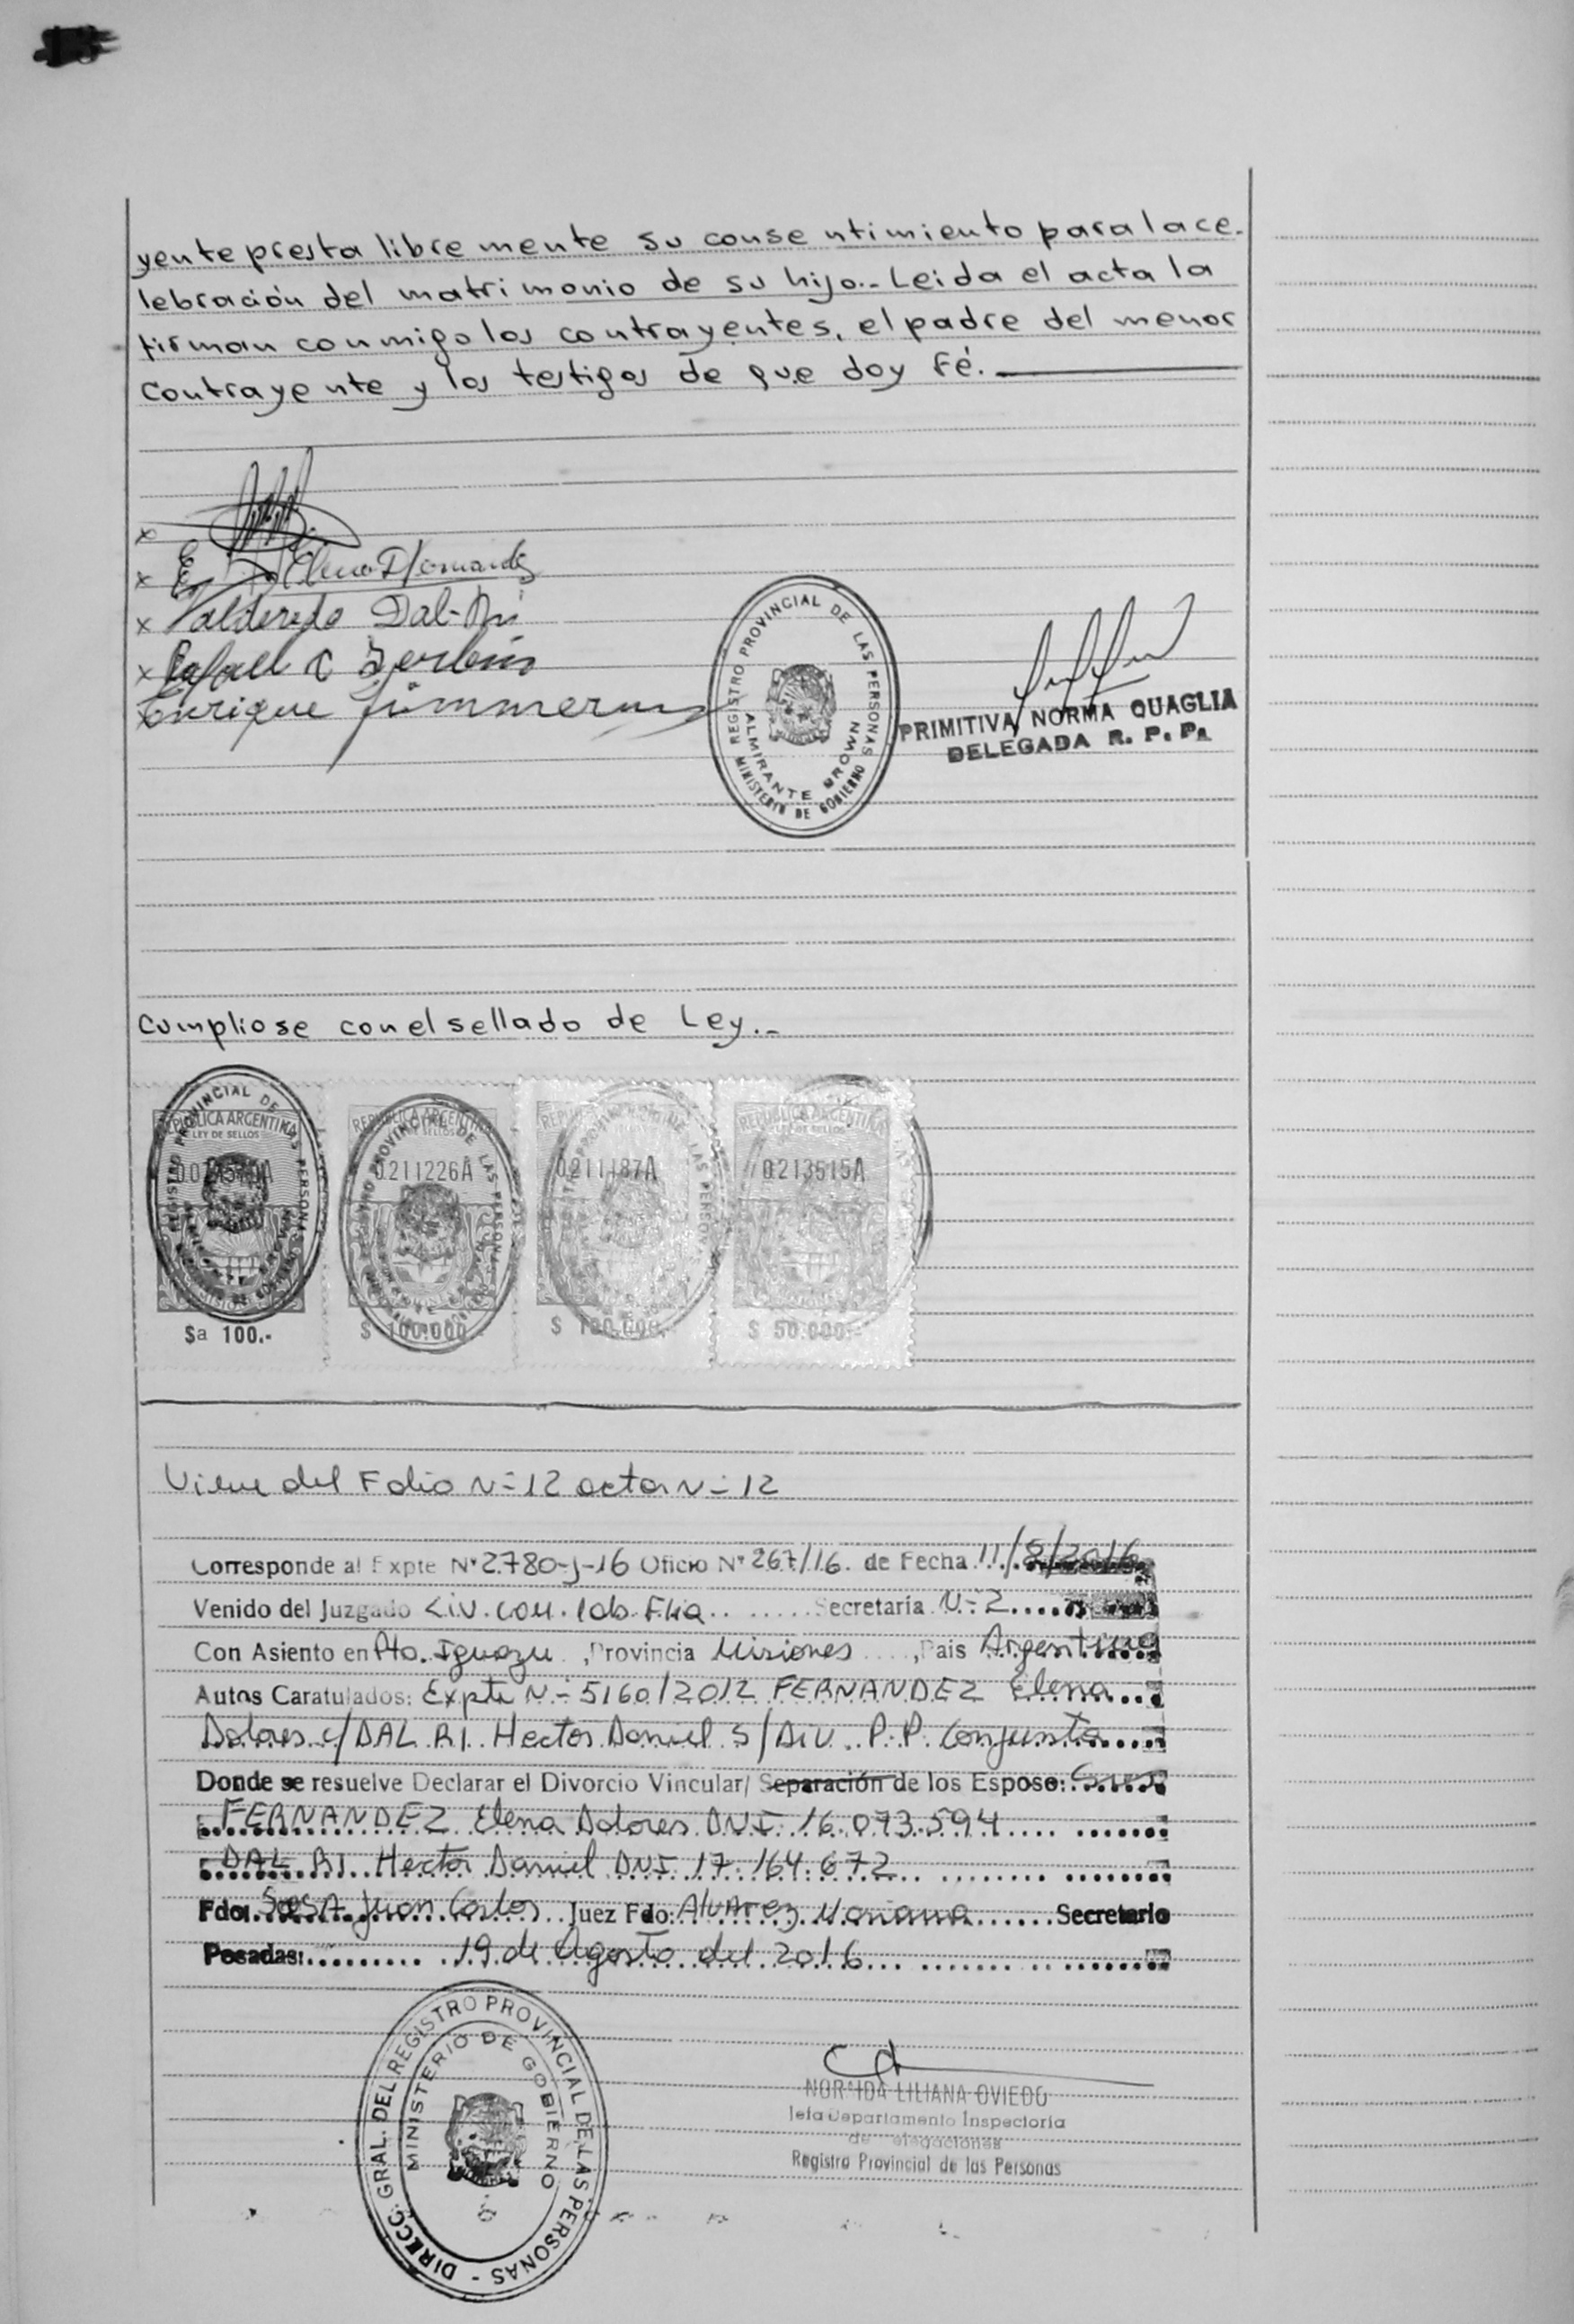 yente presta libremente su consentimiento para la ce-
lebración del matrimonio de su hijo.- Leida el acta la
firman conmigo los contrayentes, el padre del menor
contrayente y los testigos de que doy Fé.
Elena D Fernandez
Dal-Ri
Rafael C
Enrique
REGISTRO PROVINCIAL DE LAS PERSONAS
ALMIRANTE BROWN
MINISTERIO DE GOBIERNO
PRIMITIVA NORMA QUAGLIA
DELEGADA R. P. P.
Cumpliose con el sellado de Ley.-
REPUBLICA ARGENTINA
LEY DE SELLOS
$a 100.-
REPUBLICA ARGENTINA
0211226A
$ 100.000.-
0211187A
$ 100.000.-
REPUBLICA ARGENTINA
LEY DE SELLOS
0213515A
$ 50.000.-
Viene del Folio N-12 acta N-12
Corresponde al Expte N° 2780-J-16 Oficio N° 267/16. de Fecha 11/8/2016
Venido del Juzgado Civ. Com. Lab. Flia. Secretaria N-2
Con Asiento en Pto. Iguazu, Provincia Misiones, Pais Argentina
Autos Caratulados: Expte N- 5160/2012 FERNANDEZ Elena
Dolores c/ DAL RI Hector Daniel S/ Div. P.P. Conjunta
Donde se resuelve Declarar el Divorcio Vincular/ Separación de los Esposo:
FERNANDEZ Elena Dolores DNI 16.073.594
DAL RI Hector Daniel DNI 17.164.672
Fdo: SOSA Juan Carlos Juez Fdo: Alvarez Mariana Secretario
Posadas: 19 de Agosto del 2016
DIRECC. GRAL. DEL REGISTRO PROVINCIAL DE LAS PERSONAS -
MINISTERIO DE GOBIERNO
LILIANA OVIEDO
Jefa Departamento Inspectoria
de elegaciones
Registro Provincial de las Personas